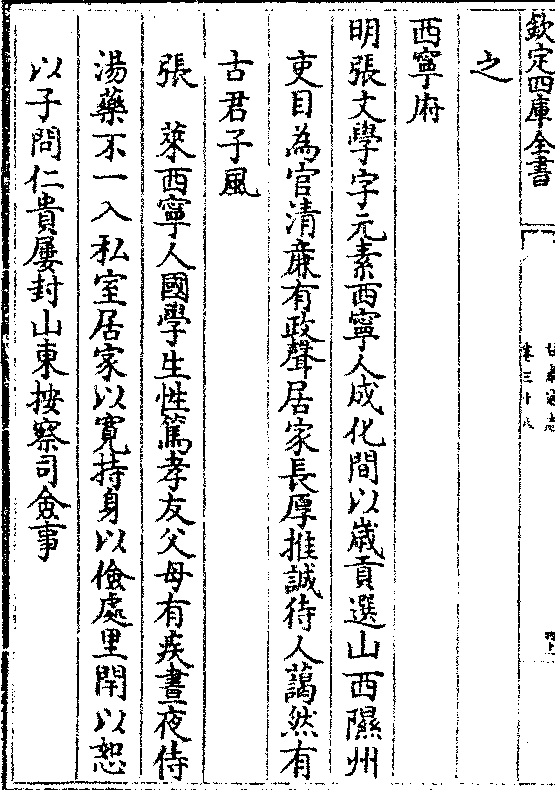 欽定四庫全書
之
西寧府
明張文學字元素西寧人成化間以歳貢選山西隰州
吏目為官清亷有政聲居家長厚推誠待人藹然有
古君子風
張　萊西寧人國學生性篤孝友父母有疾晝夜侍
湯藥不一入私室居家以寛持身以儉處里閈以恕
以子問仁貴屢封山東按察司僉事